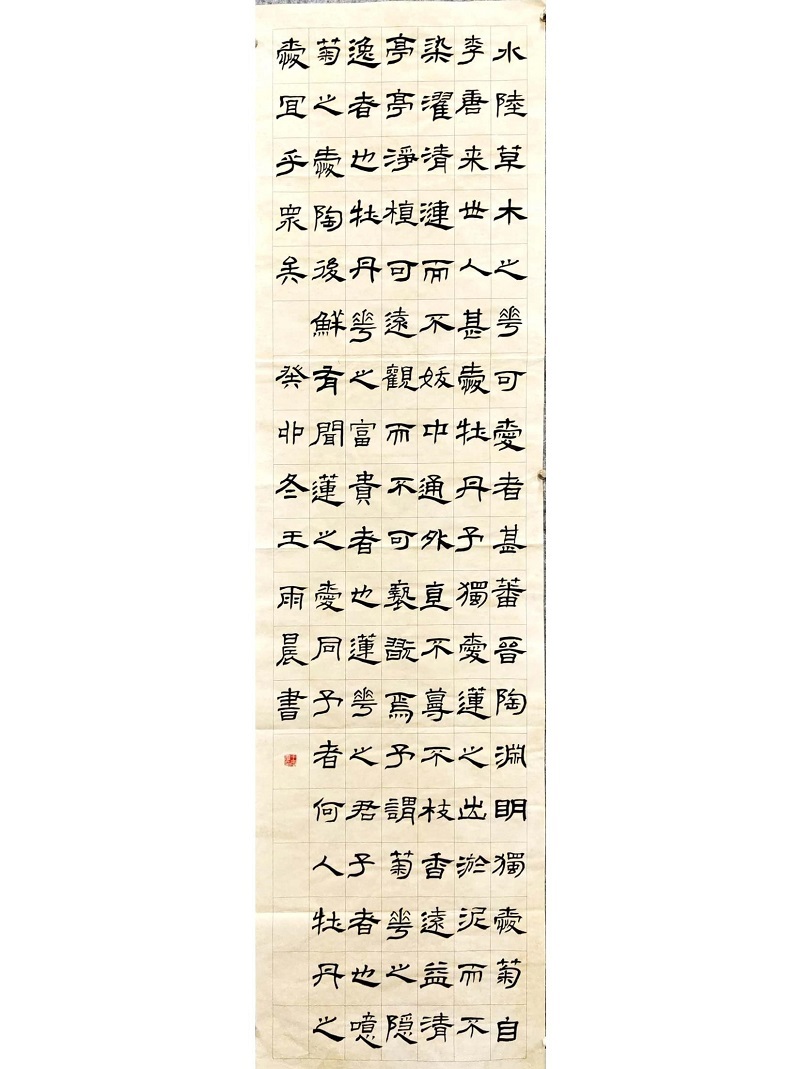 水陸草木之花可愛者甚蕃晉陶淵明獨愛菊自
李唐来世人甚愛牡丹予獨愛蓮之出淤泥而不
染濯清漣而不妖中通外直不蔓不枝香遠益清
亭亭淨植可遠觀而不可褻翫焉予謂菊花之隱
逸者也牡丹花之富貴者也蓮花之君子者也噫
菊之愛陶後鮮有聞蓮之愛同予者何人牡丹之
愛宜乎眾矣 癸卯冬王雨晨書